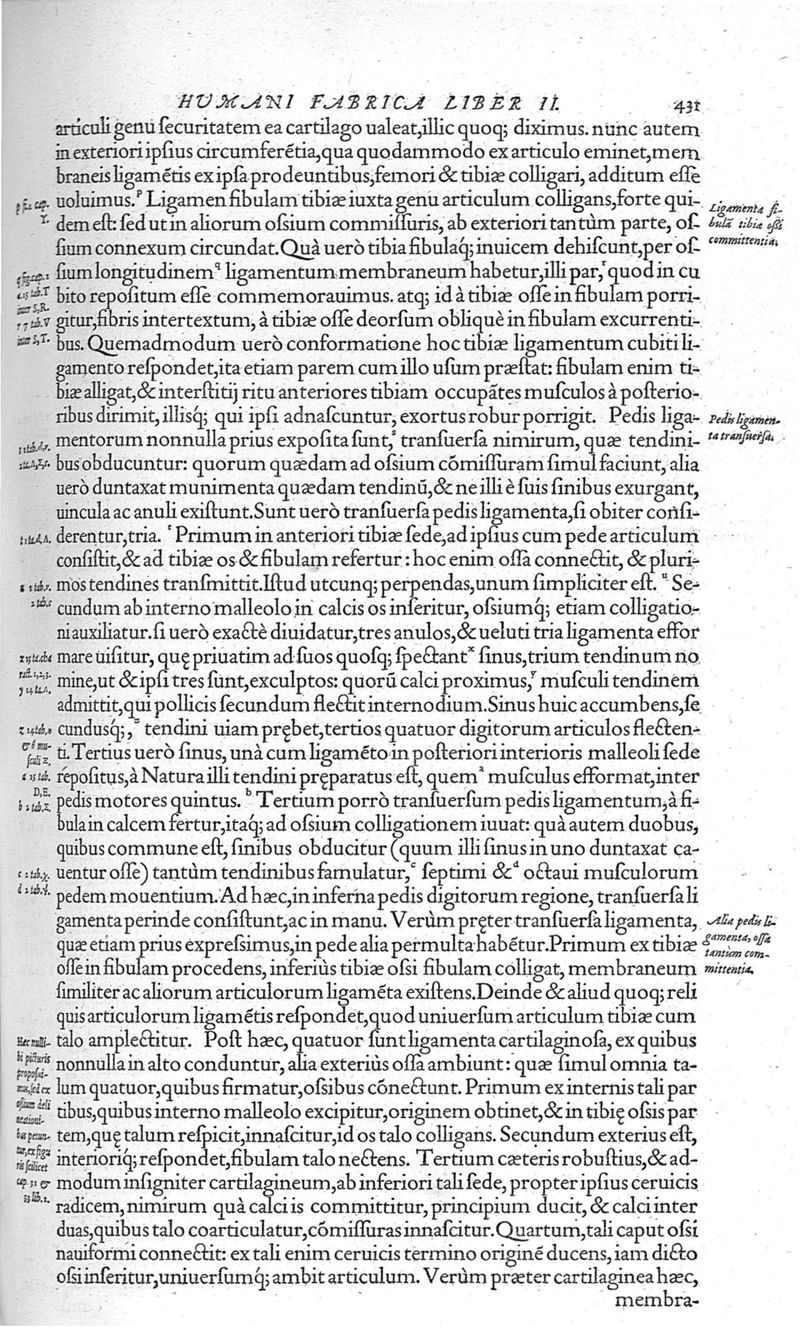 HVMANI FABRICA LIBER II. 431
articuli genu ſecuritatem ea cartilago ualeat,illic quoq; diximus. nunc autem
in exteriori ipſius circumferētia,qua quodammodo ex articulo eminet,mem
braneis ligamētis ex ipſa prodeuntibus,femori & tibiæ colligari, additum eſſe
uoluimus.ᵖ Ligamen fibulam tibiæ iuxta genu articulum colligans,forte qui-
dem eſt: ſed ut in aliorum oſsium commiſſuris, ab exteriori tantùm parte, oſ-
ſium connexum circundat. Quà uerò tibia fibulaq́; inuicem dehiſcunt,per oſ-
ſium longitudinem ᑫ ligamentum membraneum habetur,illi par,ʳ quod in cu
bito repoſitum eſſe commemorauimus. atq; id à tibiæ oſſe in fibulam porri-
gitur,fibris intertextum, à tibiæ oſſe deorſum obliquè in fibulam excurrenti-
bus. Quemadmodum uerò conformatione hoc tibiæ ligamentum cubiti li-
gamento reſpondet,ita etiam parem cum illo uſum præſtat: fibulam enim ti-
biæ alligat,& interſtitij ritu anteriores tibiam occupātes muſculos à poſterio-
ribus dirimit, illisq́; qui ipſi adnaſcuntur, exortus robur porrigit. Pedis liga-
mentorum nonnulla prius expoſita ſunt,ˢ tranſuerſa nimirum, quæ tendini-
bus obducuntur: quorum quædam ad oſsium cōmiſſuram ſimul faciunt, alia
uerò duntaxat munimenta quædam tendinū,& ne illi è ſuis ſinibus exurgant,
uincula ac anuli exiſtunt. Sunt uerò tranſuerſa pedis ligamenta,ſi obiter conſi-
derentur,tria. ᵗ Primum in anteriori tibiæ ſede,ad ipſius cum pede articulum
conſiſtit,& ad tibiæ os & fibulam refertur: hoc enim oſſa connectit, & pluri-
mos tendines tranſmittit. Iſtud utcunq; perpendas,unum ſimpliciter eſt. ᵘ Se-
cundum ab interno malleolo in calcis os inſeritur, oſsiumq́; etiam colligatio-
ni auxiliatur. ſi uerò exactè diuidatur,tres anulos,& ueluti tria ligamenta effor
mare uiſitur, quę priuatim ad ſuos quoſq; ſpectant ˣ ſinus,trium tendinum no
mine,ut & ipſi tres ſunt,exculptos: quorū calci proximus,ʸ muſculi tendinem
admittit,qui pollicis ſecundum flectit internodium. Sinus huic accumbens,ſe
cundusq́;,ᶻ tendini uiam prębet,tertios quatuor digitorum articulos flecten-
ti. Tertius uerò ſinus, unà cum ligamēto in poſteriori interioris malleoli ſede
repoſitus,à Natura illi tendini pręparatus eſt, quem ᵃ muſculus efformat,inter
pedis motores quintus. ᵇ Tertium porrò tranſuerſum pedis ligamentum,à fi-
bula in calcem fertur,itaq; ad oſsium colligationem iuuat: quà autem duobus,
quibus commune eſt, ſinibus obducitur (quum illi ſinus in uno duntaxat ca-
uentur oſſe) tantùm tendinibus famulatur,ᶜ ſeptimi &ᵈ octaui muſculorum
pedem mouentium. Ad hæc,in inferna pedis digitorum regione, tranſuerſa li
gamenta perinde conſiſtunt,ac in manu. Verùm pręter tranſuerſa ligamenta,
quæ etiam prius expreſsimus,in pede alia permulta habētur. Primum ex tibiæ
oſſe in fibulam procedens, inferiùs tibiæ oſsi fibulam colligat, membraneum
ſimiliter ac aliorum articulorum ligamēta exiſtens. Deinde & aliud quoq; reli
quis articulorum ligamētis reſpondet,quod uniuerſum articulum tibiæ cum
talo amplectitur. Poſt hæc, quatuor ſunt ligamenta cartilaginoſa, ex quibus
nonnulla in alto conduntur, alia exteriùs oſſa ambiunt: quæ ſimul omnia ta-
lum quatuor,quibus firmatur,oſsibus cōnectunt. Primum ex internis tali par
tibus,quibus interno malleolo excipitur,originem obtinet,& in tibię oſsis par
tem,quę talum reſpicit,innaſcitur,id os talo colligans. Secundum exterius eſt,
interioriq́; reſpondet,fibulam talo nectens. Tertium cæteris robuſtius,& ad-
modum inſigniter cartilagineum,ab inferiori tali ſede, propter ipſius ceruicis
radicem, nimirum quà calci is committitur, principium ducit, & calci inter
duas,quibus talo coarticulatur,cōmiſſuras innaſcitur. Quartum,tali caput oſsi
nauiformi connectit: ex tali enim ceruicis termino originē ducens, iam dicto
oſsi inſeritur,uniuerſumq́; ambit articulum. Verùm præter cartilaginea hæc,
membra-
Ligamenta fi-
bulā tibiæ oſsi
committentia.
Pedis ligamen-
ta tranſuerſa.
Alia pedis li-
gamenta, oſſa
tantùm com-
mittentia.